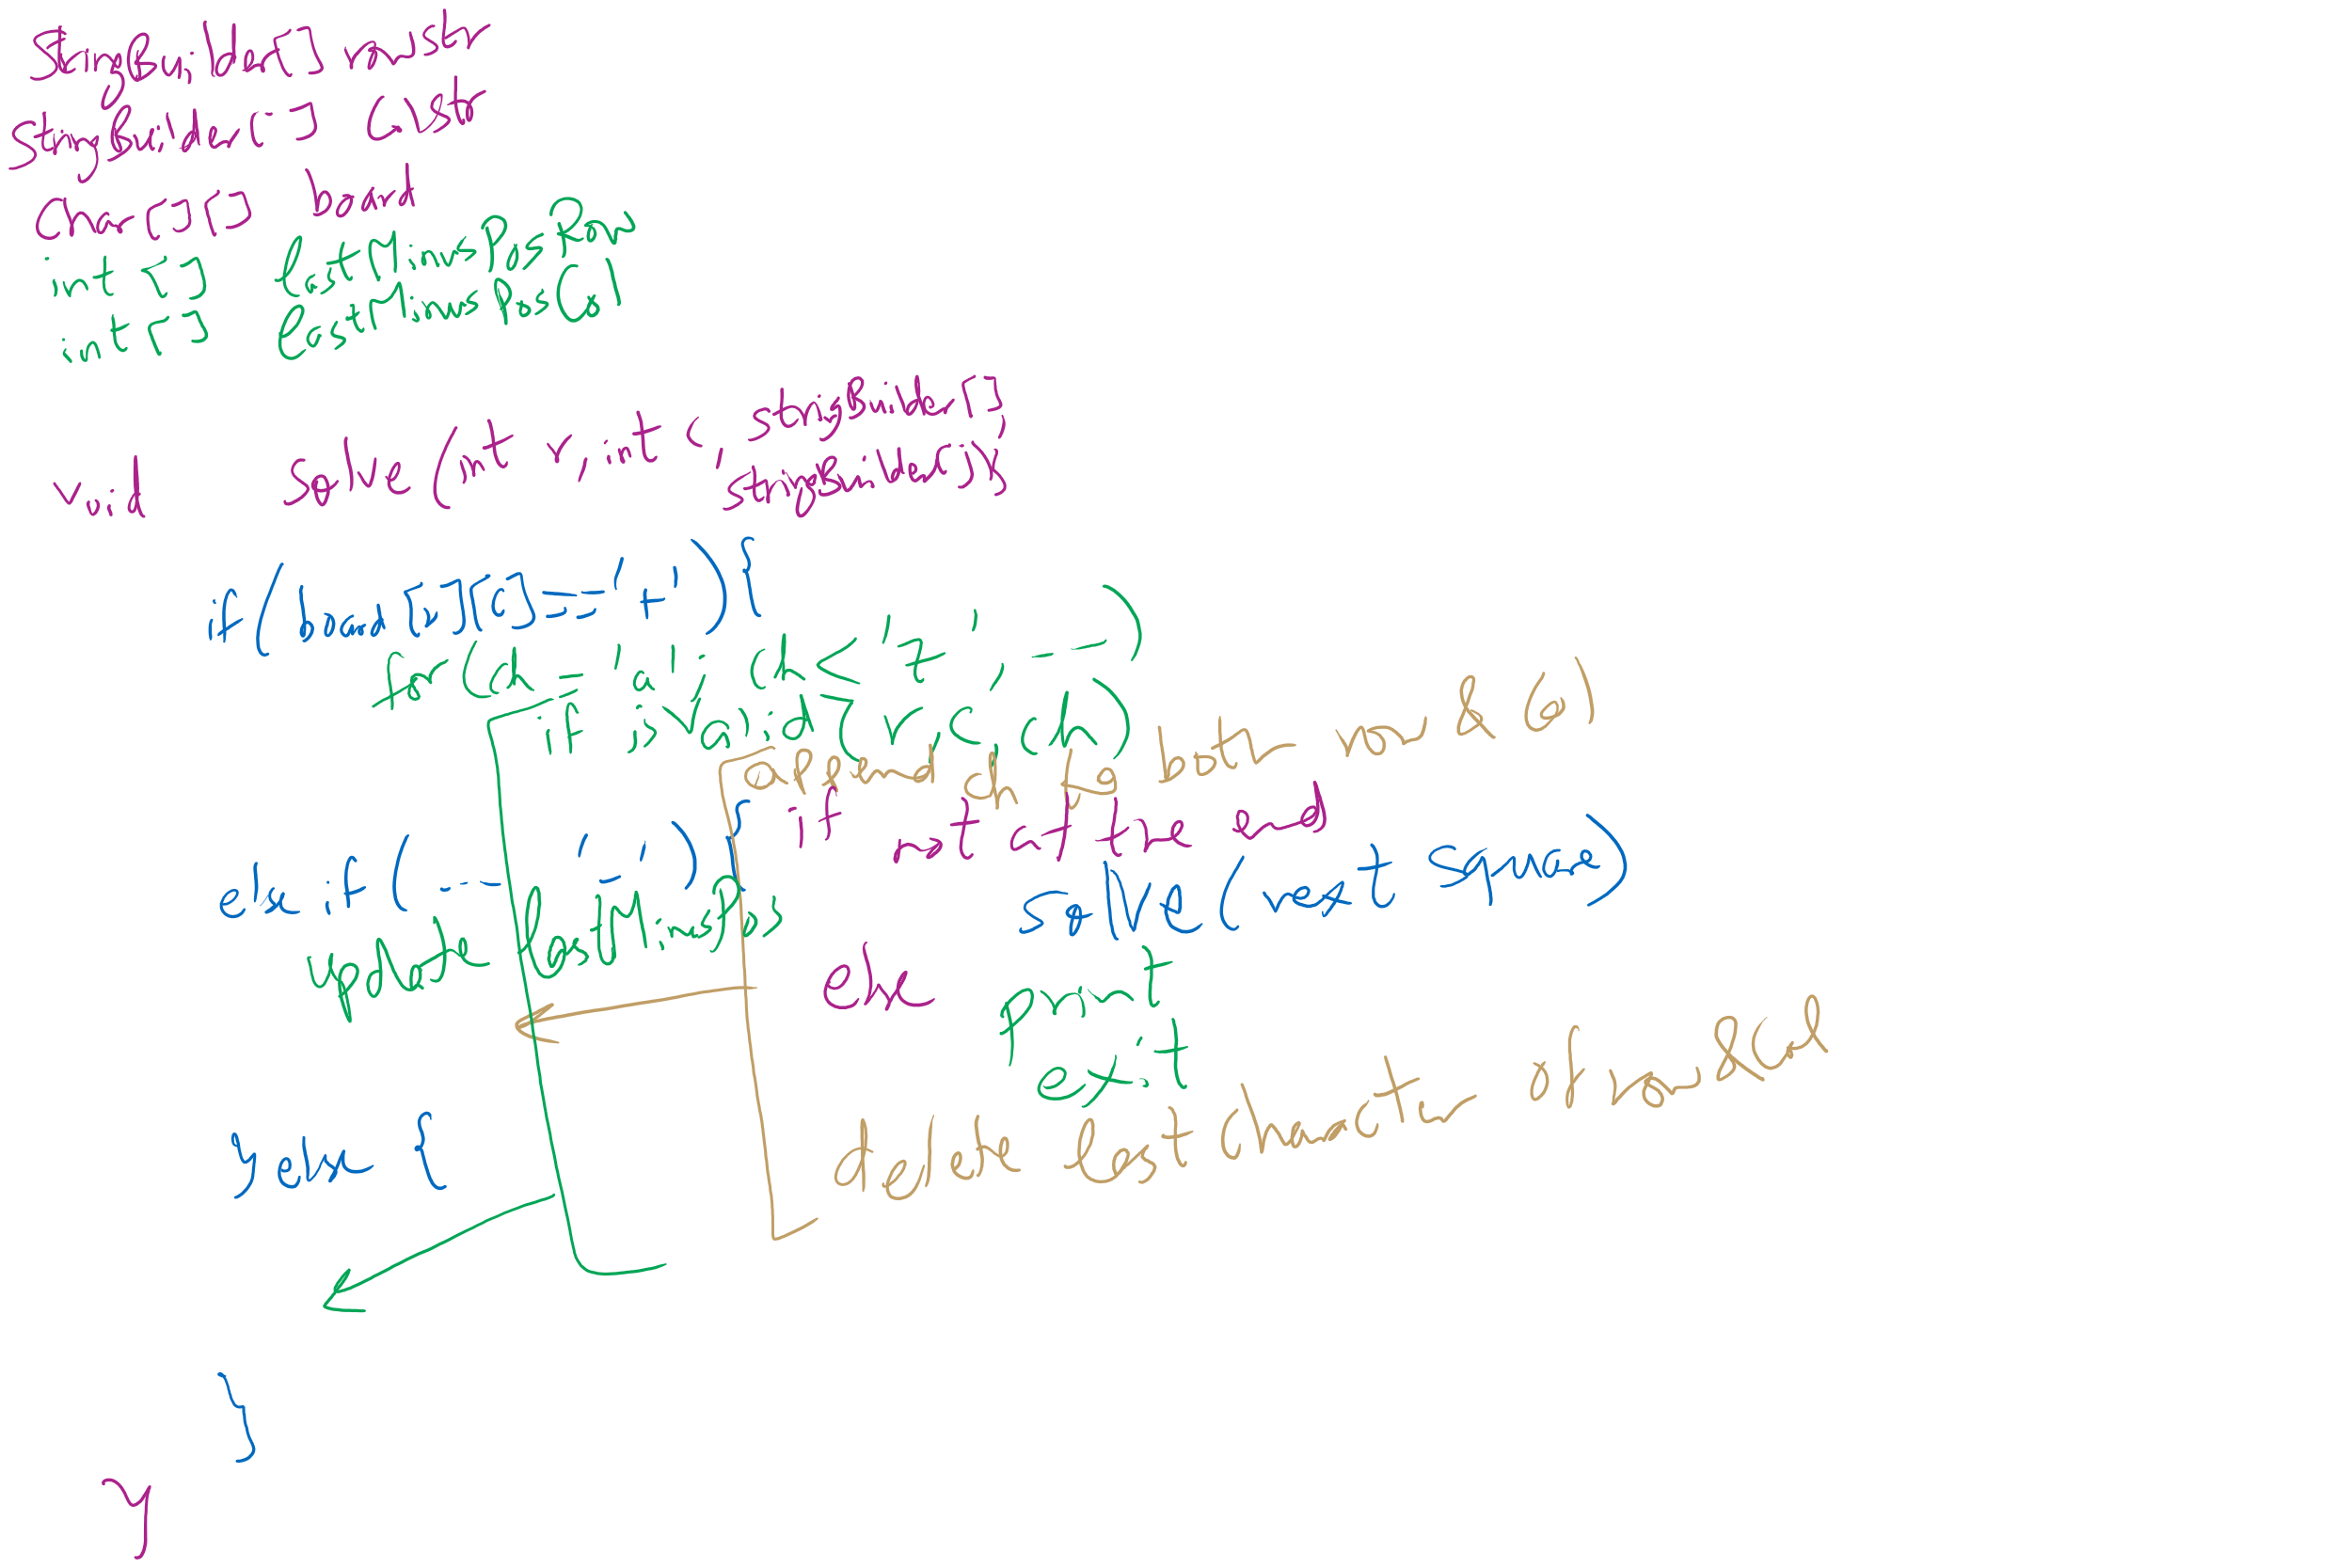 StringBuilder[] rowstr
StringBuilder[] colstr
char[][] board
int [] lastMinusPosRow
int [] lastMinusPosCol
void solve (int r, int c, stringBuilder[],
stringBuilder[]);
if(board[r][c]=='+'){
for(ch='a'; ch<'z'; ---)
if isValid(r,c,ch)
append ch to both row & col
if not at the end
solve(next space)
else print
exit
delete last character of row & col
else if (--- '-'){
update lastMinusPos
}else {
}
}